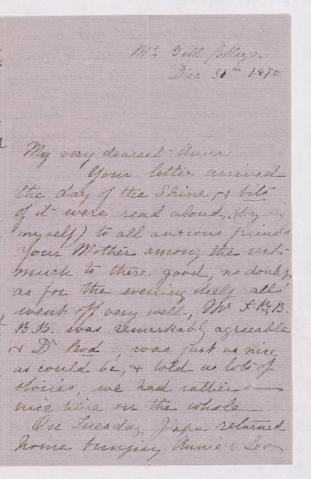 McGill College.
Dec 31st 1870.
My very dearest Anna
Your letter arrived
the day of the Shine, & bits
of it were read aloud, (by
myself) to all anxious friends
Your Mother among the rest
much to there good, no doubt,
as for the evening itself all
went off very well, Mr F.
B.B. was remarkably agreeable
& Dr was just as nice
as could be, & told us lots of
stories, we had rather a
nice time on the whole
On Tuesday Papa returned
home bringing Annie &